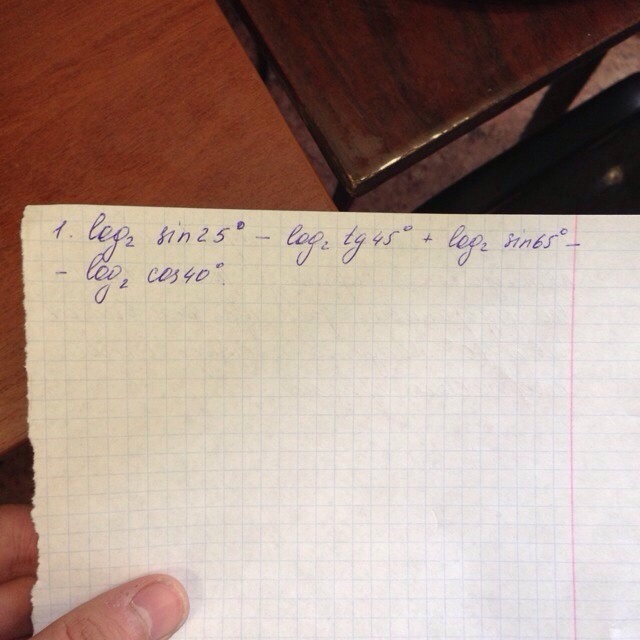 1. log₂ sin25° – log₂ tg45° + log₂ sin65° –
– log₂ cos40°.